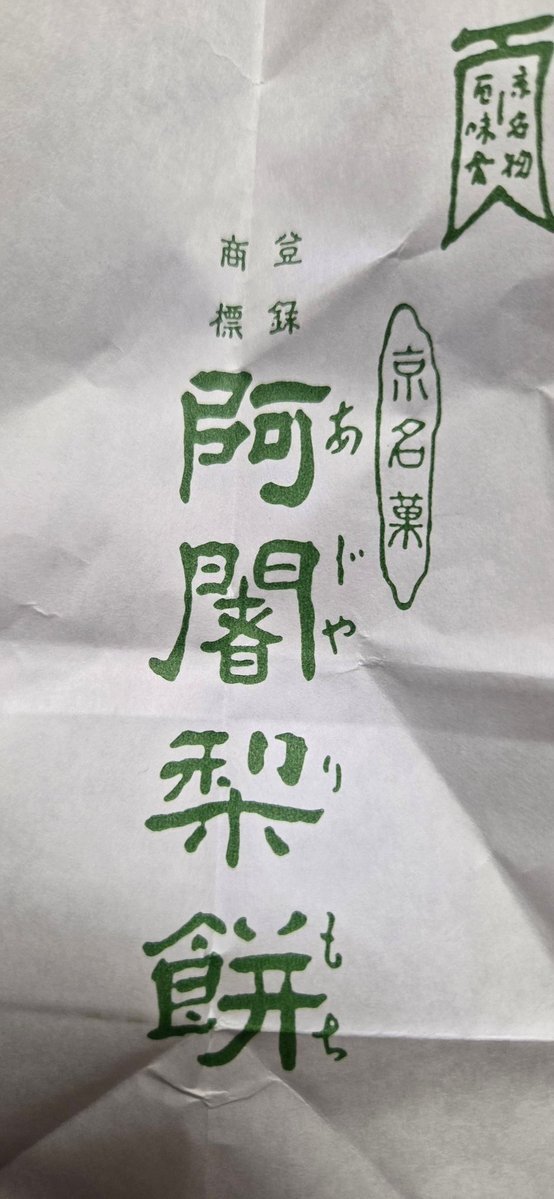 京名物
百味会
京名菓
登録
商標
あじゃりもち
阿闍梨餅